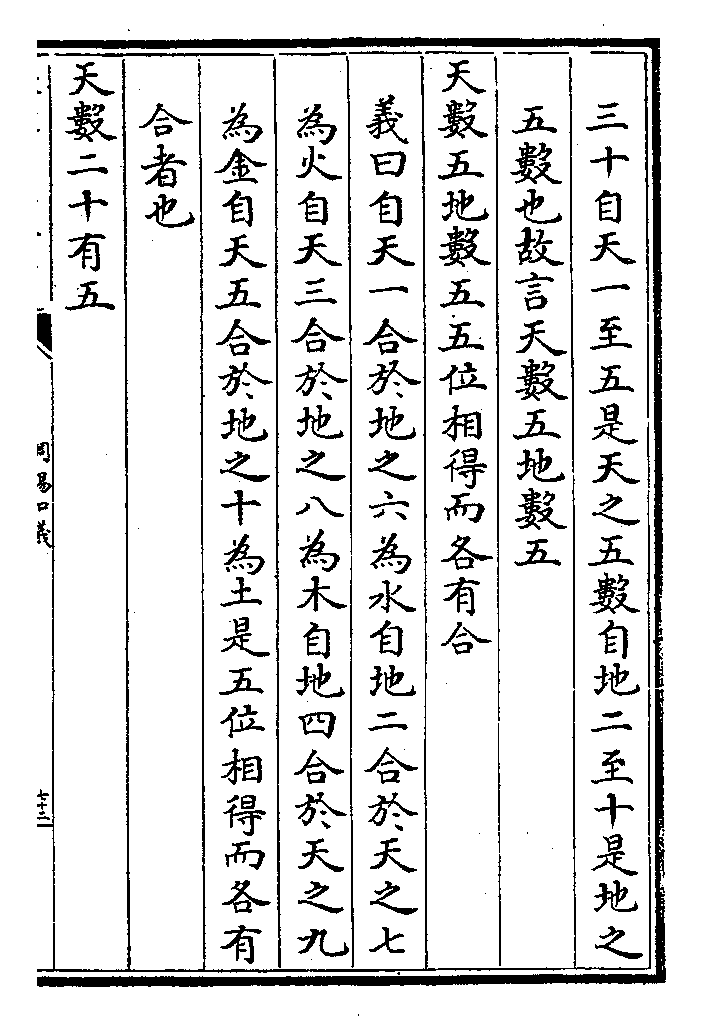 三十自天一至五是天之五數自地二至十是地之
五數也故言天數五地數五
天數五地數五五位相得而各有合
義曰自天一合於地之六為水自地二合於天之七
為火自天三合於地之八為木自地四合於天之九
為金自天五合於地之十為土是五位相得而各有
合者也
天數二十有五
周易口義
七十三